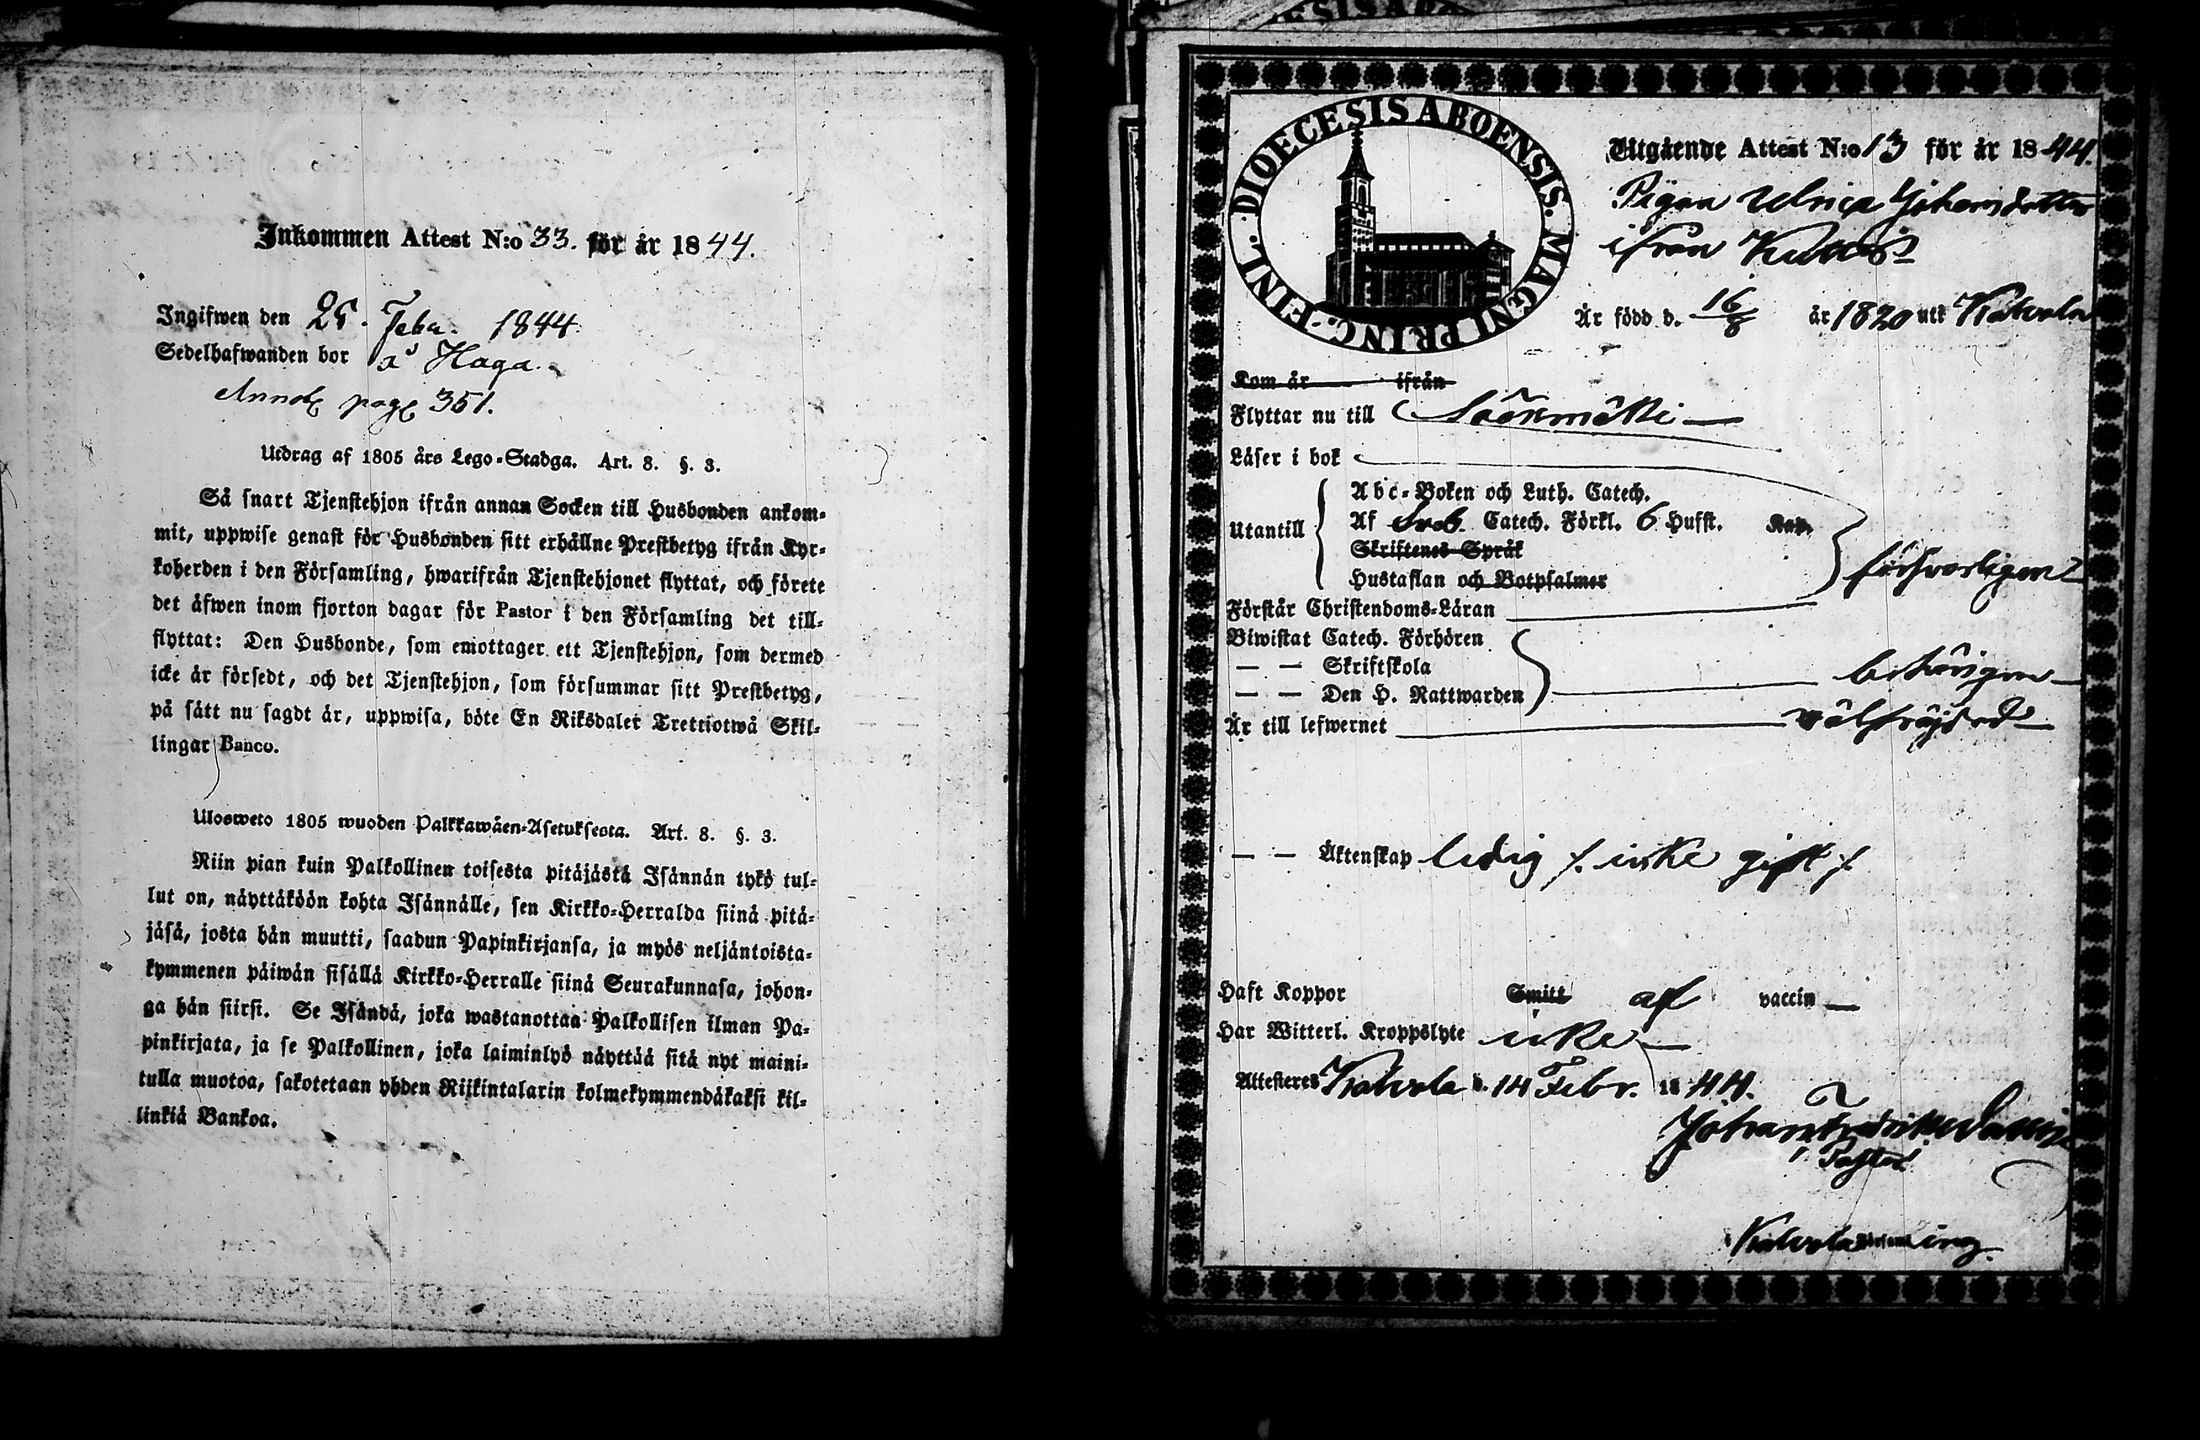 Inkommen Attest N:o 33. för år 1844.
Ingifwen den 25. Febr. 1844
Sedelhafwanden bor å Haga.
Annot pag 351.
Utdrag af 1805 års Lego-Stadga. Art. 8. §. 3.
Så snart Tjenstehjon ifrån annan Socken till Husbonden ankom-
mit, uppwise genast för Husbonden sitt erhållne Prestbetyg ifrån Kyr-
koherden i den Församling, hwarifrån Tjenstehjonet flyttat, och förete
det äfwen inom fjorton dagar för Pastor i den Församling det till-
flyttat: Den Husbonde, som emottager ett Tjenstehjon, som dermed
icke är försedt, och det Tjenstehjon, som försummar sitt Prestbetyg,
på sätt nu sagdt är, uppwisa, böte En Riksdaler Trettiotwå Skil-
lingar Banco.
Ulosweto 1805 wuoden Palkkawäen-Asetuksesta. Art. 8. §. 3.
Niin pian kuin Palkollinen toisesta pitäjästä Isännän tykö tul-
lut on, näyttäköön kohta Isännälle, sen Kirkko-Herralda siinä pitä-
jäsä, josta hän muutti, saadun Papinkirjansa, ja myös neljäntoista-
kymmenen päiwän sisällä Kirkko-Herralle siinä Seurakunnasa, johon-
ga hän siirsi. Se Isändä, joka wastanottaa Palkollisen ilman Pa-
pinkirjata, ja se Palkollinen, joka laiminlyö näyttää sitä nyt maini-
tulla muotoa, sakotetaan yhden Riikintalarin kolmekymmendäkaksi kil-
linkiä Bankoa.
DIOECESIS ABOENSIS. MAGNI PRINC. FINL.
Utgående Attest N:o 13 för år 1844.
Pigan Ulrica Johansdotter
ifrån
Är född d. 16/8 år 1820 uti Kalvola
Kom år ifrån
Flyttar nu till Sääksmäki
Läser i bok
Abc-Boken och Luth. Catech.
Utantill Af Sveb. Catech. Förkl. 6 Hufst. Kap.
Skriftenes Språk
Hustaflan och Botpsalmer
försvarligen
Förstår Christendoms-Läran
Biwistat Catech. Förhören
— — Skriftskola
— — Den H. Nattwarden
behörigen
Är till lefwernet välfräjdad
— — Äktenskap ledig /. icke gift /.
Haft Koppor Smitt af vaccin
Har Witterl. Kroppslyte icke
Attesteres Kalvola d. 14 Febr. 1844.
Johan Fredrik
Pastor
Kalvola Församling.